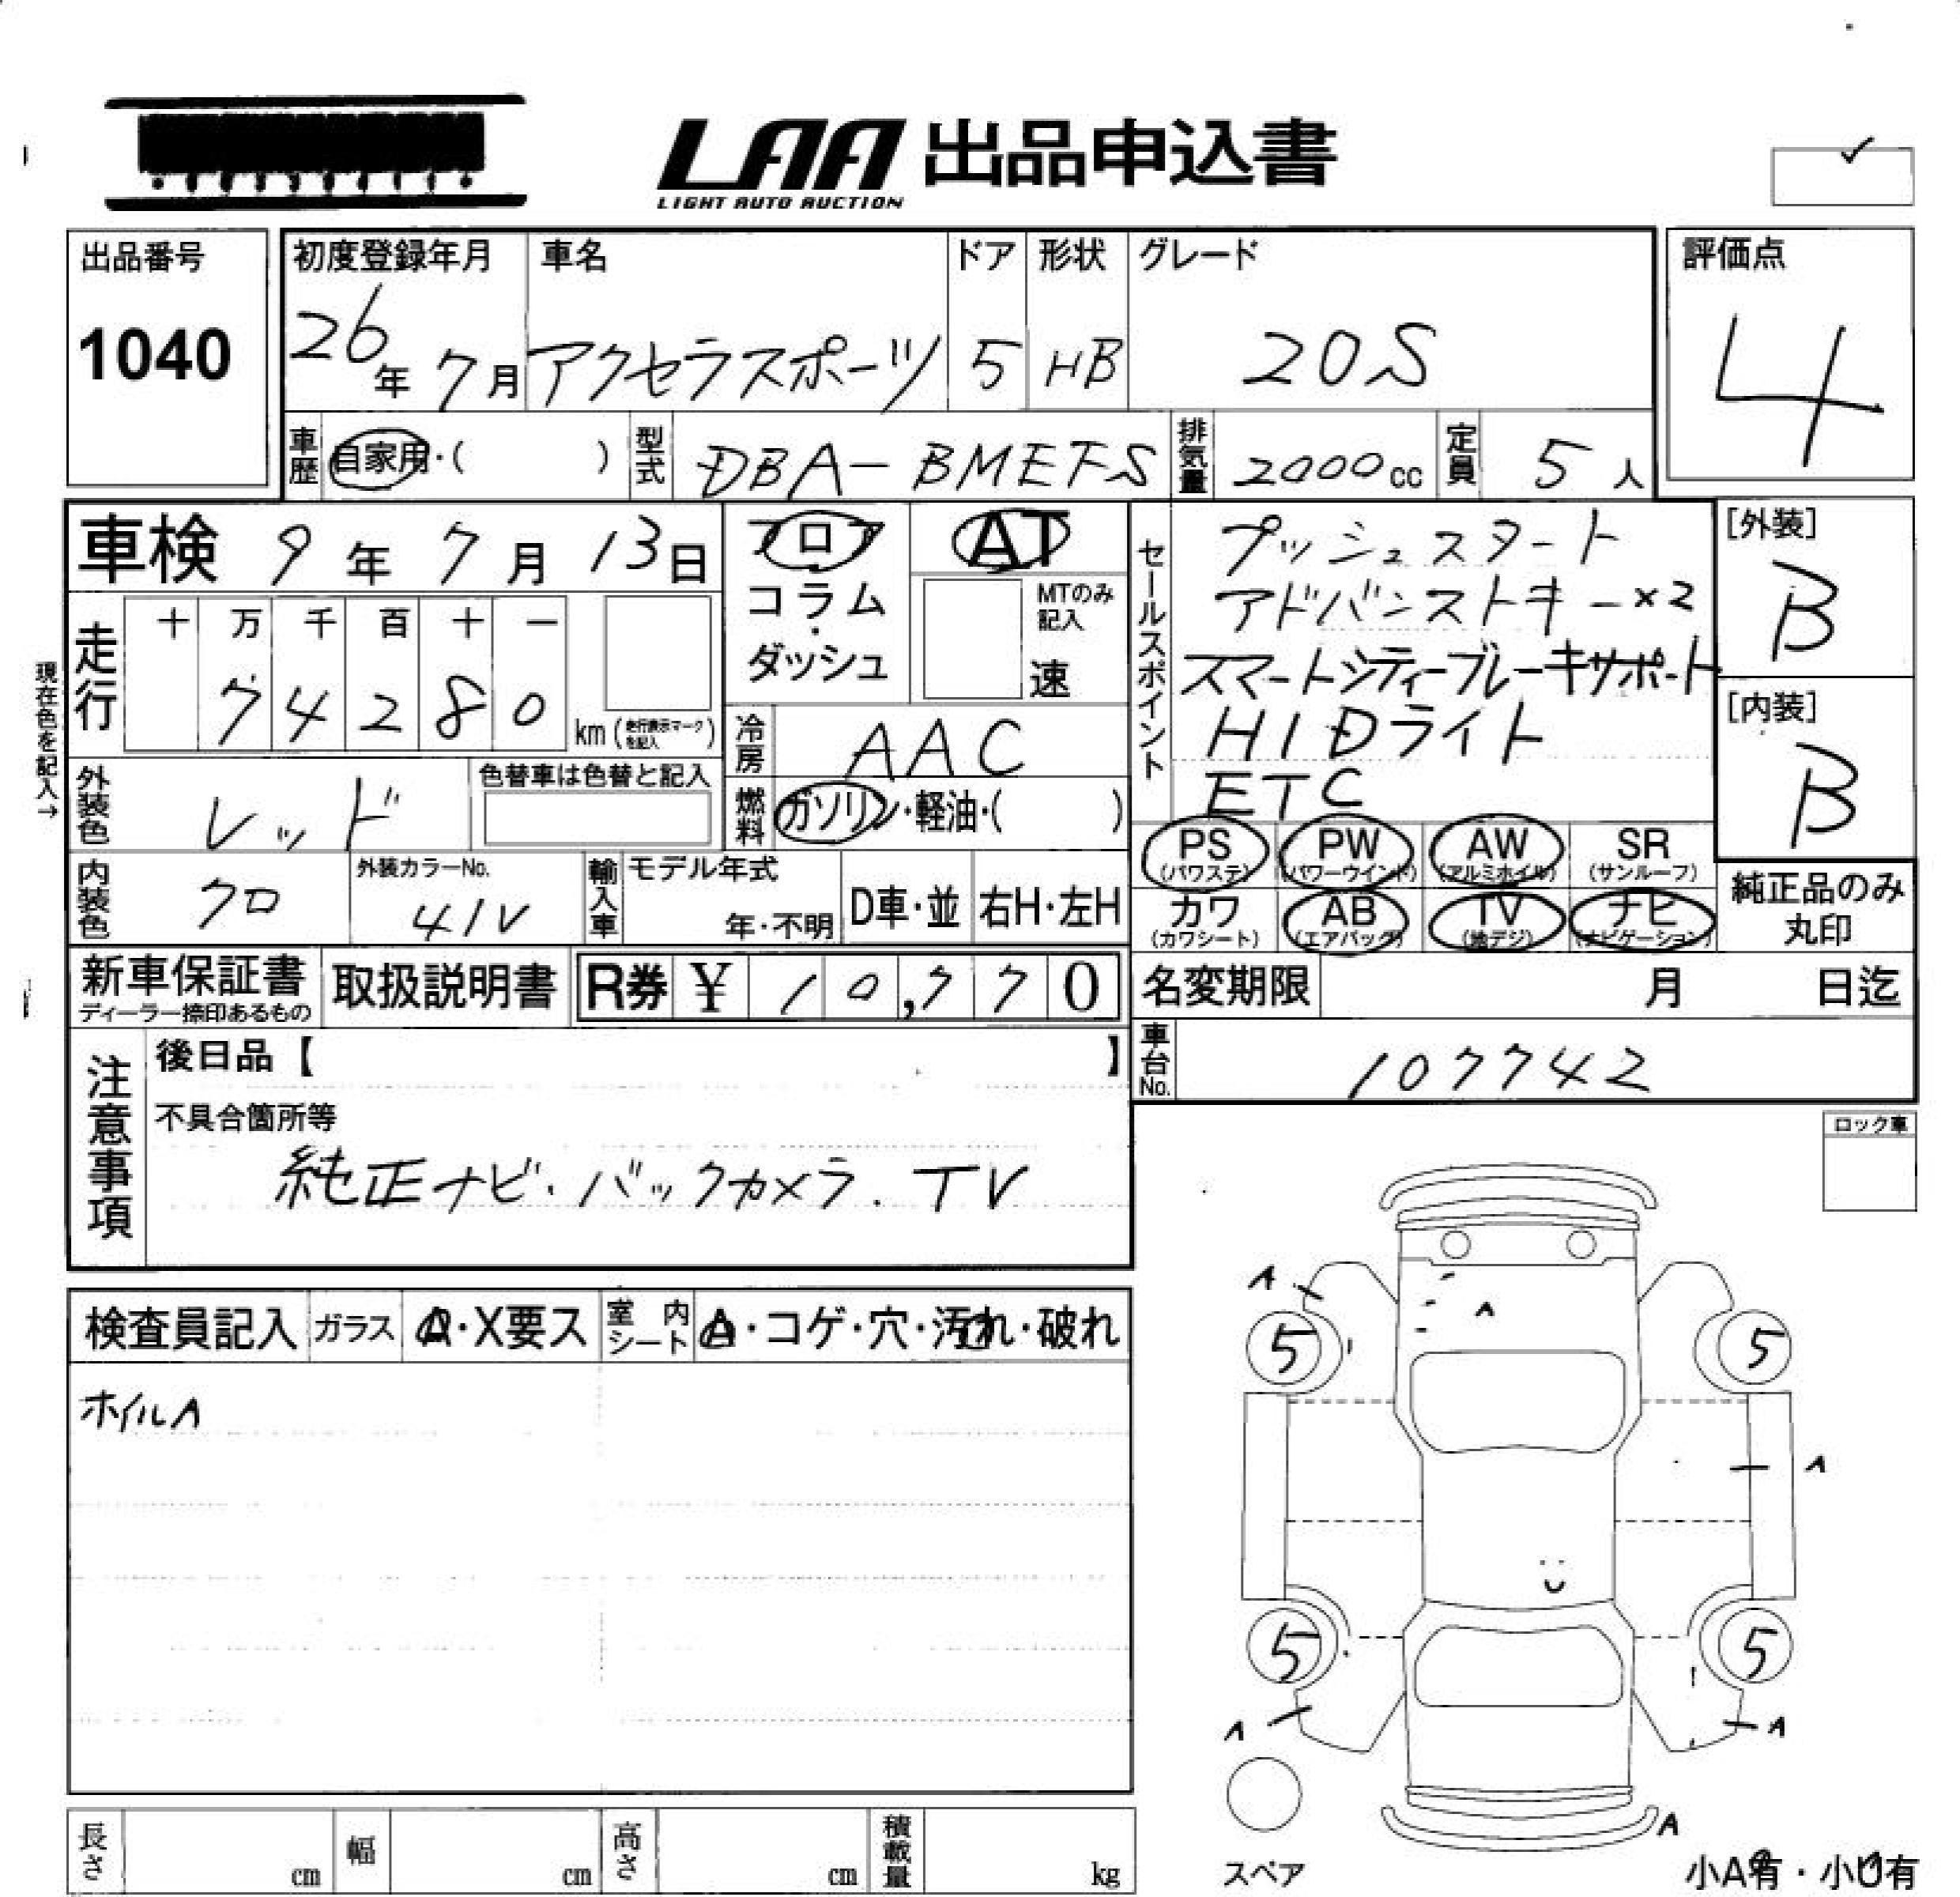 LAA 出品申込書
LIGHT AUTO AUCTION
出品番号
1040
初度登録年月
26年 7月
車名
アクセラスポーツ
ドア
5
形状
HB
グレード
20S
評価点
4
車歴
自家用・(　　)
型式
DBA-BMEFS
排気量
2000cc
定員
5人
車検 9年 7月 13日
フロア
コラム・
ダッシュ
AT
MTのみ記入
速
現在色を記入→
走行
十 万 千 百 十 一
7 4 2 8 0
km (走行表示マークを記入)
冷房
AAC
セールスポイント
プッシュスタート
アドバンストキー×2
スマートシティーブレーキサポート
HIDライト
ETC
[外装]
B
[内装]
B
外装色
レッド
色替車は色替と記入
燃料
ガソリン・軽油・(　　)
PS (パワステ)
PW (パワーウインド)
AW (アルミホイル)
SR (サンルーフ)
カワ (カワシート)
AB (エアバッグ)
TV (地デジ)
ナビ (ナビゲーション)
純正品のみ
丸印
内装色
クロ
外装カラーNo.
41V
輸入車
モデル年式
年・不明
D車・並
右H・左H
新車保証書
ディーラー捺印あるもの
取扱説明書
R券 ¥ 10,770
名変期限　月　日迄
車台No.
107742
注意事項
後日品【　　】
不具合箇所等
純正ナビ・バックカメラ・TV
ロック車
検査員記入
ガラス
A・X要ス
室内シート
A・コゲ・穴・汚れ・破れ
ホイルA
A
A
5
5
A
5
5
A
A
A
スペア
小A有・小U有
長さ
cm
幅
cm
高さ
cm
積載量
kg